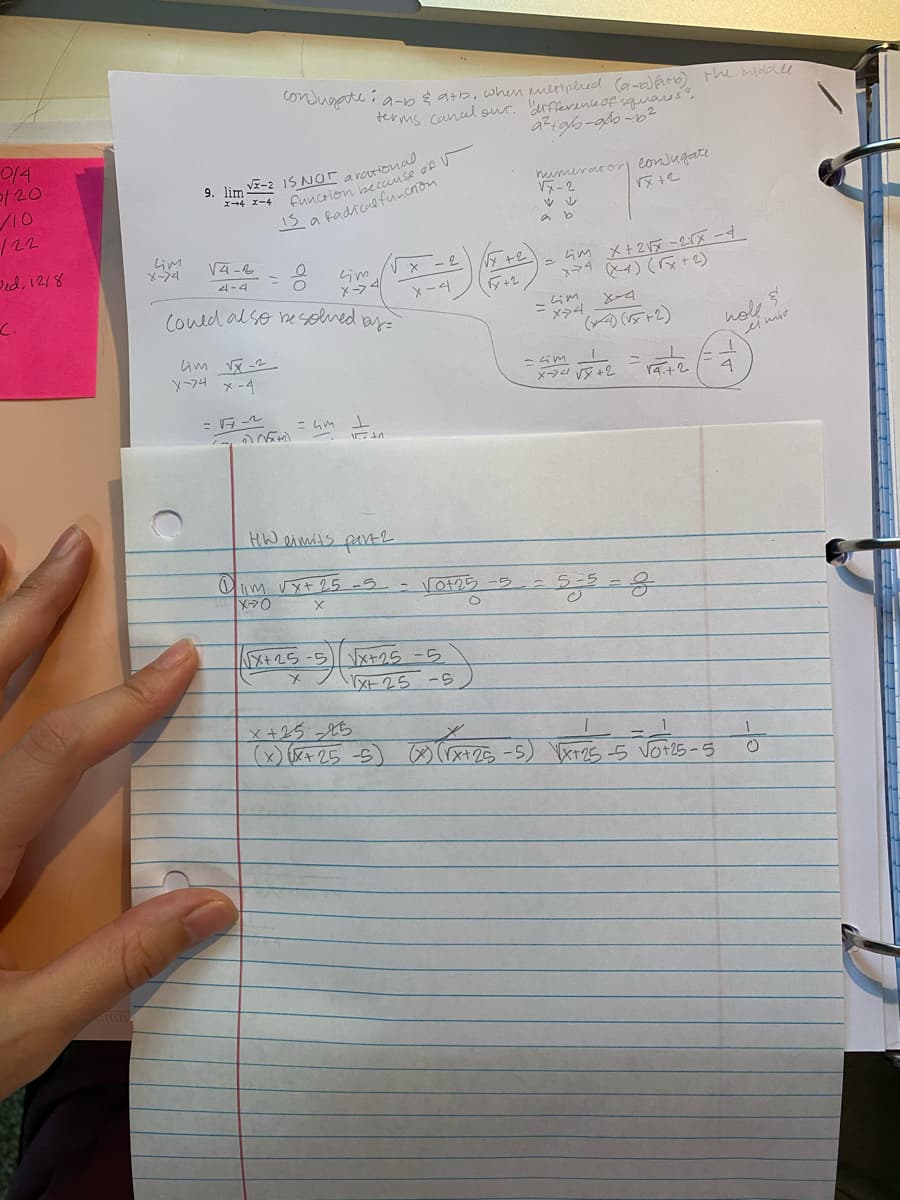 0/4
/20
/10
/22
ed, 12/8
C.
conjugate: a-b & a+b. when multiplied (a-b)(a+b) the middle
terms cancel out. "difference of squares".
a²+ab-ab-b²
9. lim x→4 √x-2 / x-4 IS NOT a rational
function because of √
IS a Radical function
numerator | conjugate
√x-2 | √x+2
↓ ↓
a b
lim x→4 √4-2 / 4-4 = 0/0 lim x→4 (√x-2 / x-4)(√x+2 / √x+2) = lim x→4 x+2√x-2√x-4 / (x-4)(√x+2)
= lim x→4 x-4 / (x-4)(√x+2)
hole &
= lim x→4 1 / √x+2 = 1 / √4+2 = 1/4
could also be solved by=
lim x→4 √x-2 / x-4
= √x-2 / (√x-2)(√x+2) = lim 1 / √x+2
HW limits part 2
① lim x→0 √x+25 -5 / x = √0+25 -5 / 0 = 5-5 / 0 = 0/0
(√x+25 -5 / x)(√x+25 -5 / √x+25 -5)
x+25-25 / (x)(√x+25 -5) x / (x)(√x+25 -5) 1 / √x+25 -5 = 1 / √0+25-5 1/0